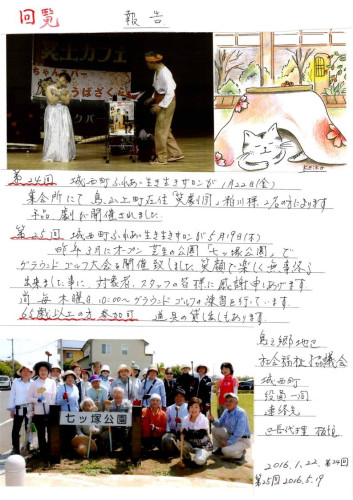 回覧
報告
笑土カフェ
ちゃんバー
うばざくら
KEIKO
第24回 城西町ふれあい生き生きサロンが1月22日(金)
集会所にて 鳥山上町在住「笑劇団」
開催されました
第25回 城西町ふれあい生き生きサロンが5月19日(木)
昨年3月にオープン 芝生の公園「七ッ塚公園」で
グラウンドゴルフ大会を開催致しました 笑顔で楽しく無事終了
出来ました事に 対象者、スタッフの皆様に感謝申しあげます
尚 毎木曜日 10:00〜グラウンドゴルフの練習を行っています
65歳以上の方参加可 道具の貸出しもあります
七ッ塚公園
鳥之郷地区
社会福祉協議会
城西町
役員一同
連絡先
区長代理
2016.1.22. 第24回
第25回 2016.5.19